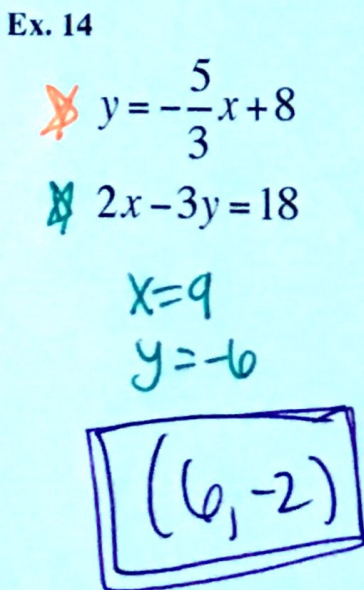 Ex. 14
y = -5/3 x + 8
2x - 3y = 18
x=9
y=-6
(6, -2)